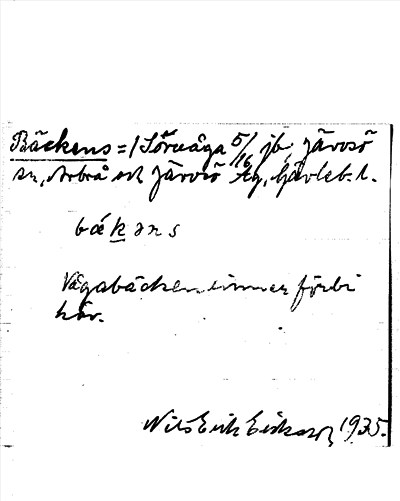 Bäckens = / Sörvåga 5/16 / jb, Järvsö
sn, Arbrå och Järvsö tg, Gävleb. l.
bäkəns
Vågabäcken rinner förbi
här.
Nils Erik Eriksson 1935.